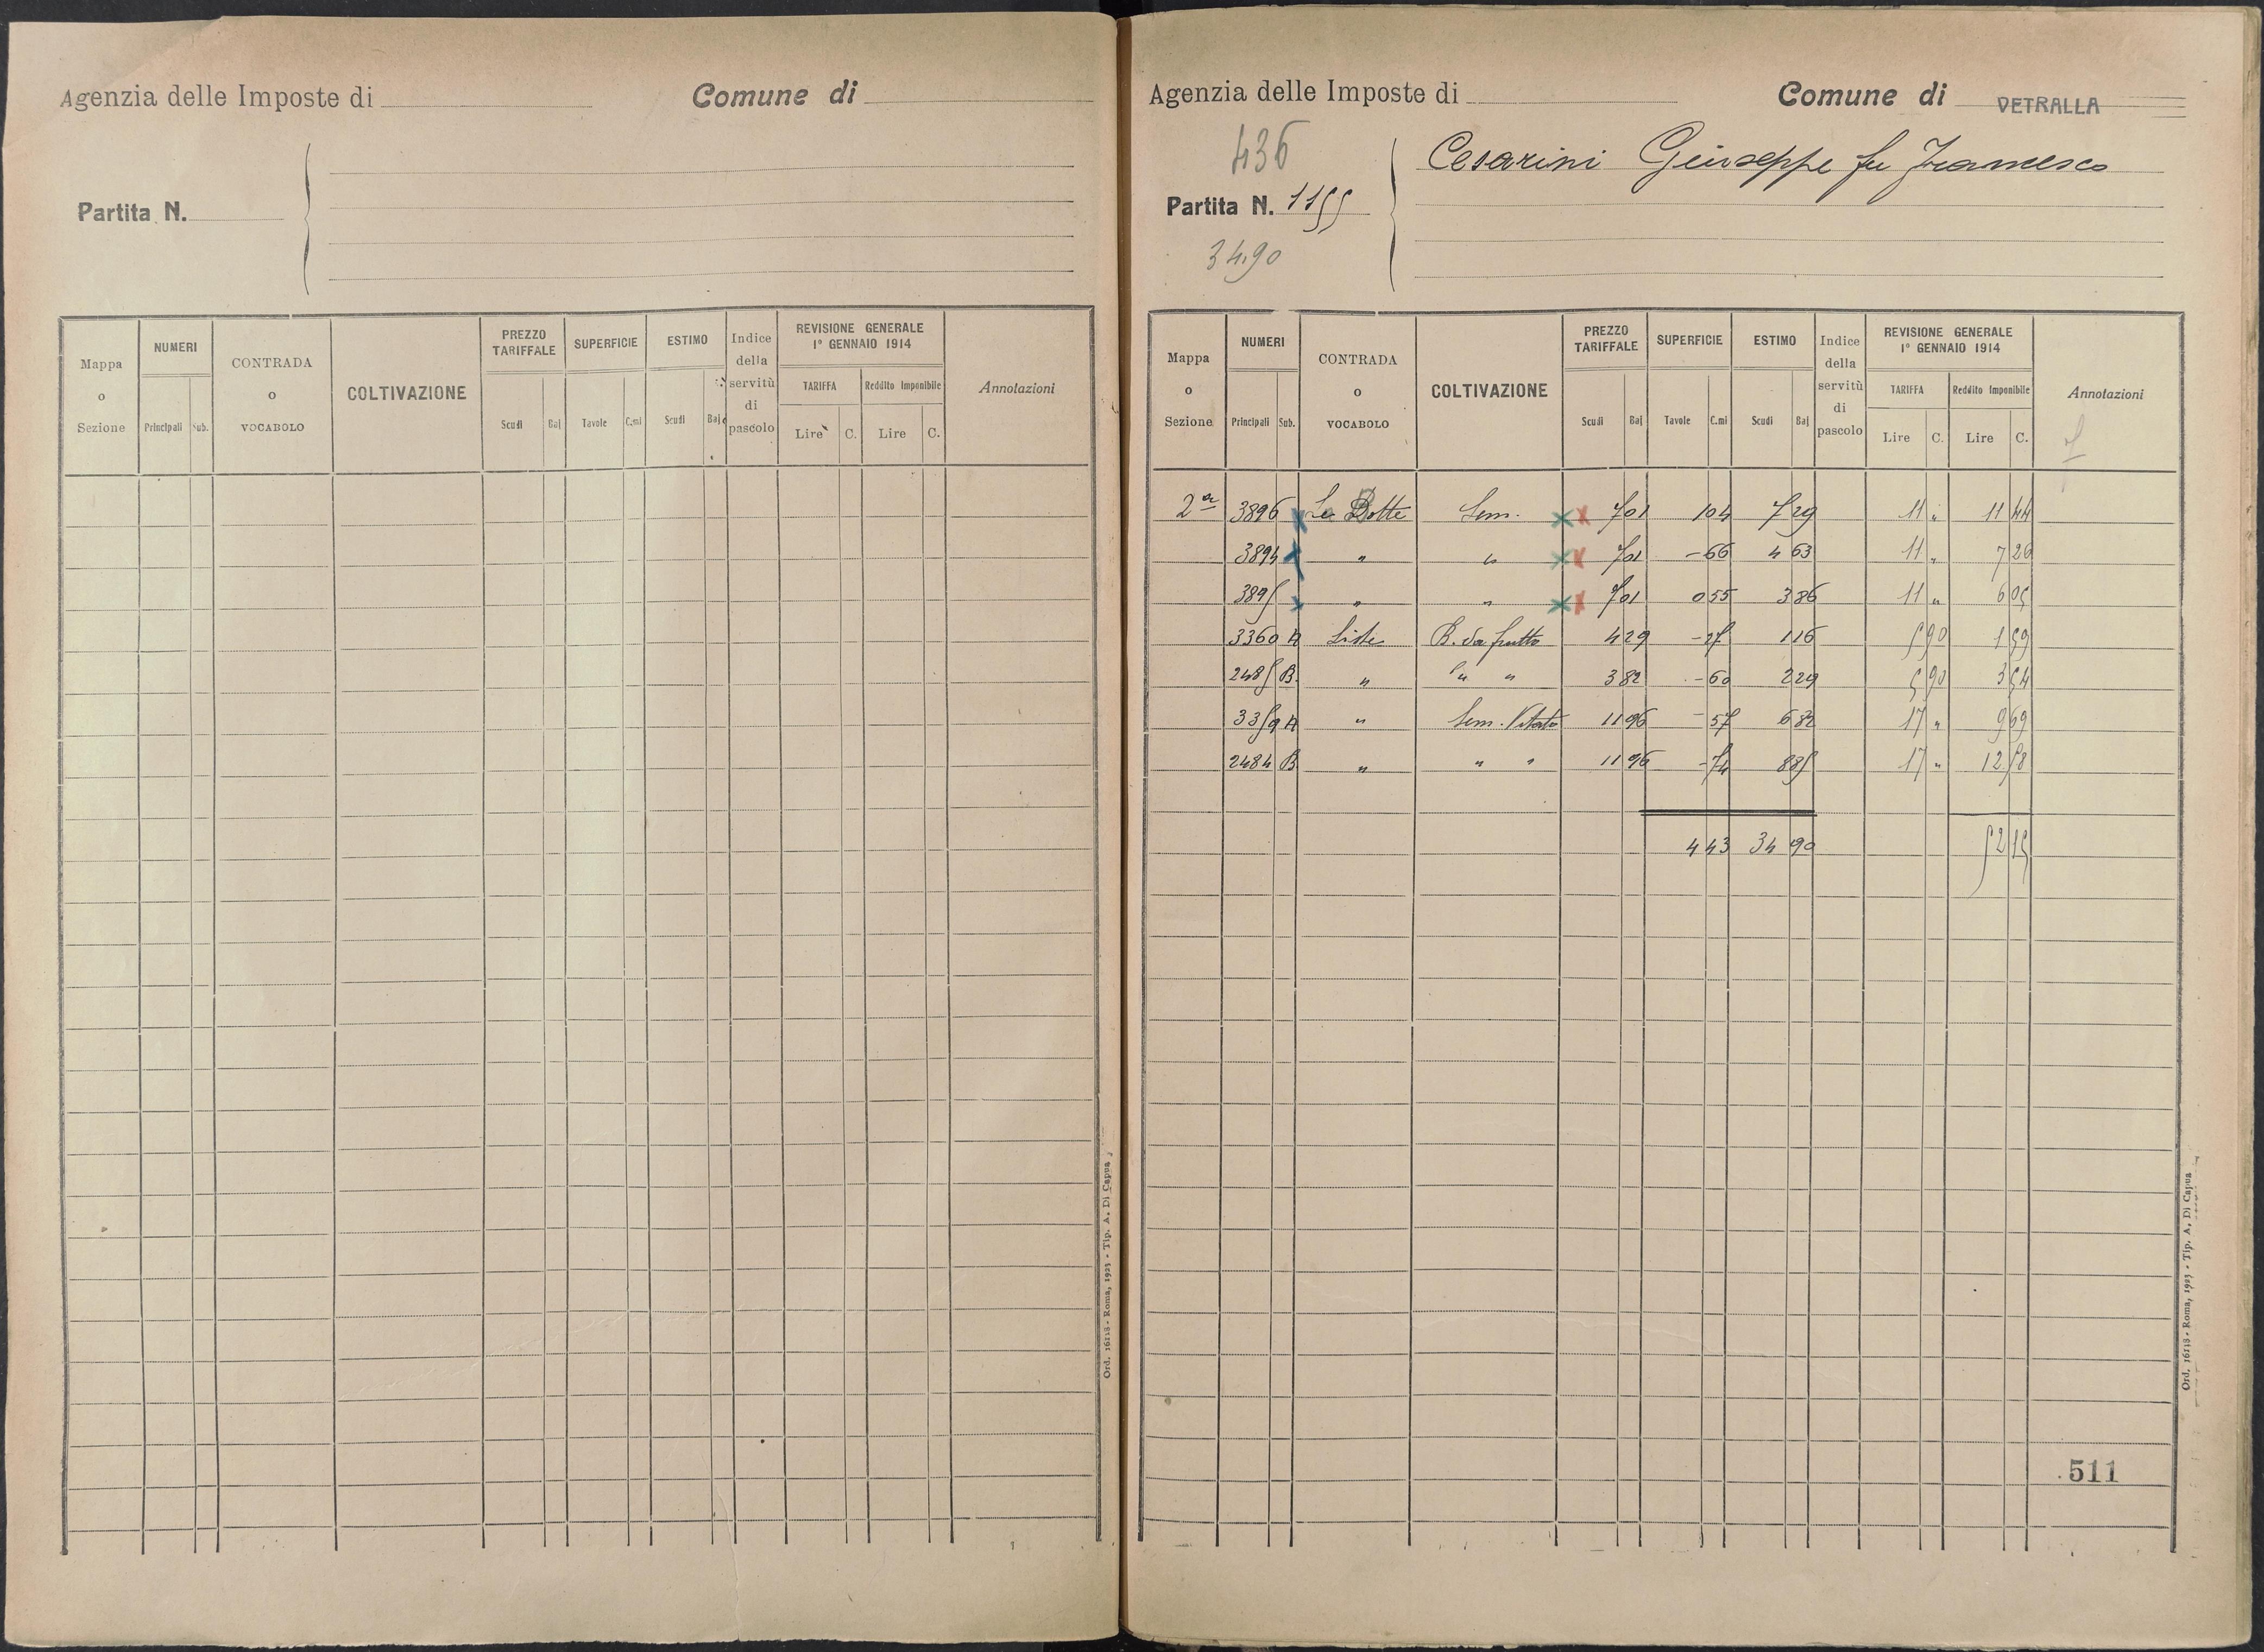 Agenzia delle Imposte di
Comune di
Partita N.
Mappa o Sezione
NUMERI
Principali Sub.
CONTRADA o VOCABOLO
COLTIVAZIONE
PREZZO TARIFFALE
Scudi Baj
SUPERFICIE
Tavole C.mi
ESTIMO
Scudi Baj
Indice della servitù di pascolo
REVISIONE GENERALE
1° GENNAIO 1914
TARIFFA
Lire C.
Reddito Imponibile
Lire C.
Annotazioni
Ord. 16118 - Roma, 1923 - Tip. A. Di Capua
Agenzia delle Imposte di
Comune di VETRALLA
436
Cesarini Giuseppe fu Francesco
Partita N. 1155
3490
Mappa o Sezione
NUMERI
Principali Sub.
CONTRADA o VOCABOLO
COLTIVAZIONE
PREZZO TARIFFALE
Scudi Baj
SUPERFICIE
Tavole C.mi
ESTIMO
Scudi Baj
Indice della servitù di pascolo
REVISIONE GENERALE
1° GENNAIO 1914
TARIFFA
Lire C.
Reddito Imponibile
Lire C.
Annotazioni
2a 3896 Le Botte Sem. 7 01 1 04 7 29 11 " 11 44
3894 " " 7 01 - 66 4 63 11 " 7 26
3895 " " 7 01 0 55 3 86 11 " 6 05
3360 A Liste B. da frutto 4 29 - 27 1 16 5 90 1 59
2485 B. " " " 3 82 - 60 2 29 5 90 3 54
3359 A " Sem. Vitato 11 96 - 57 6 82 17 " 9 69
2484 B " " " 11 96 - 74 8 85 17 " 12 58
4 43 34 90 52 15
511
Ord. 16118 - Roma, 1923 - Tip. A. Di Capua